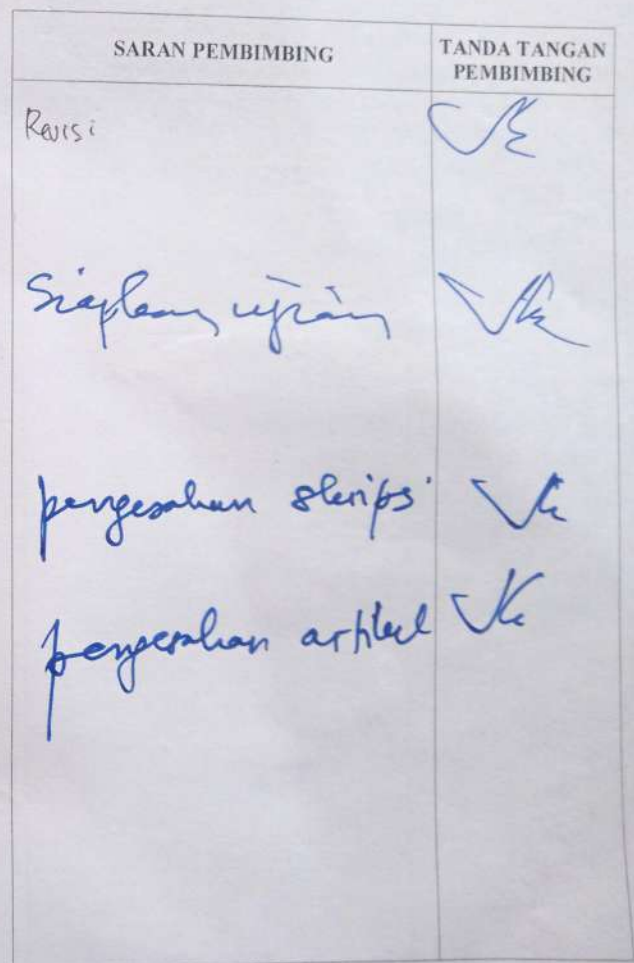 SARAN PEMBIMBING
TANDA TANGAN
PEMBIMBING
Revisi
Siapkan ujian
pengesahan skripsi
pengesahan artikel